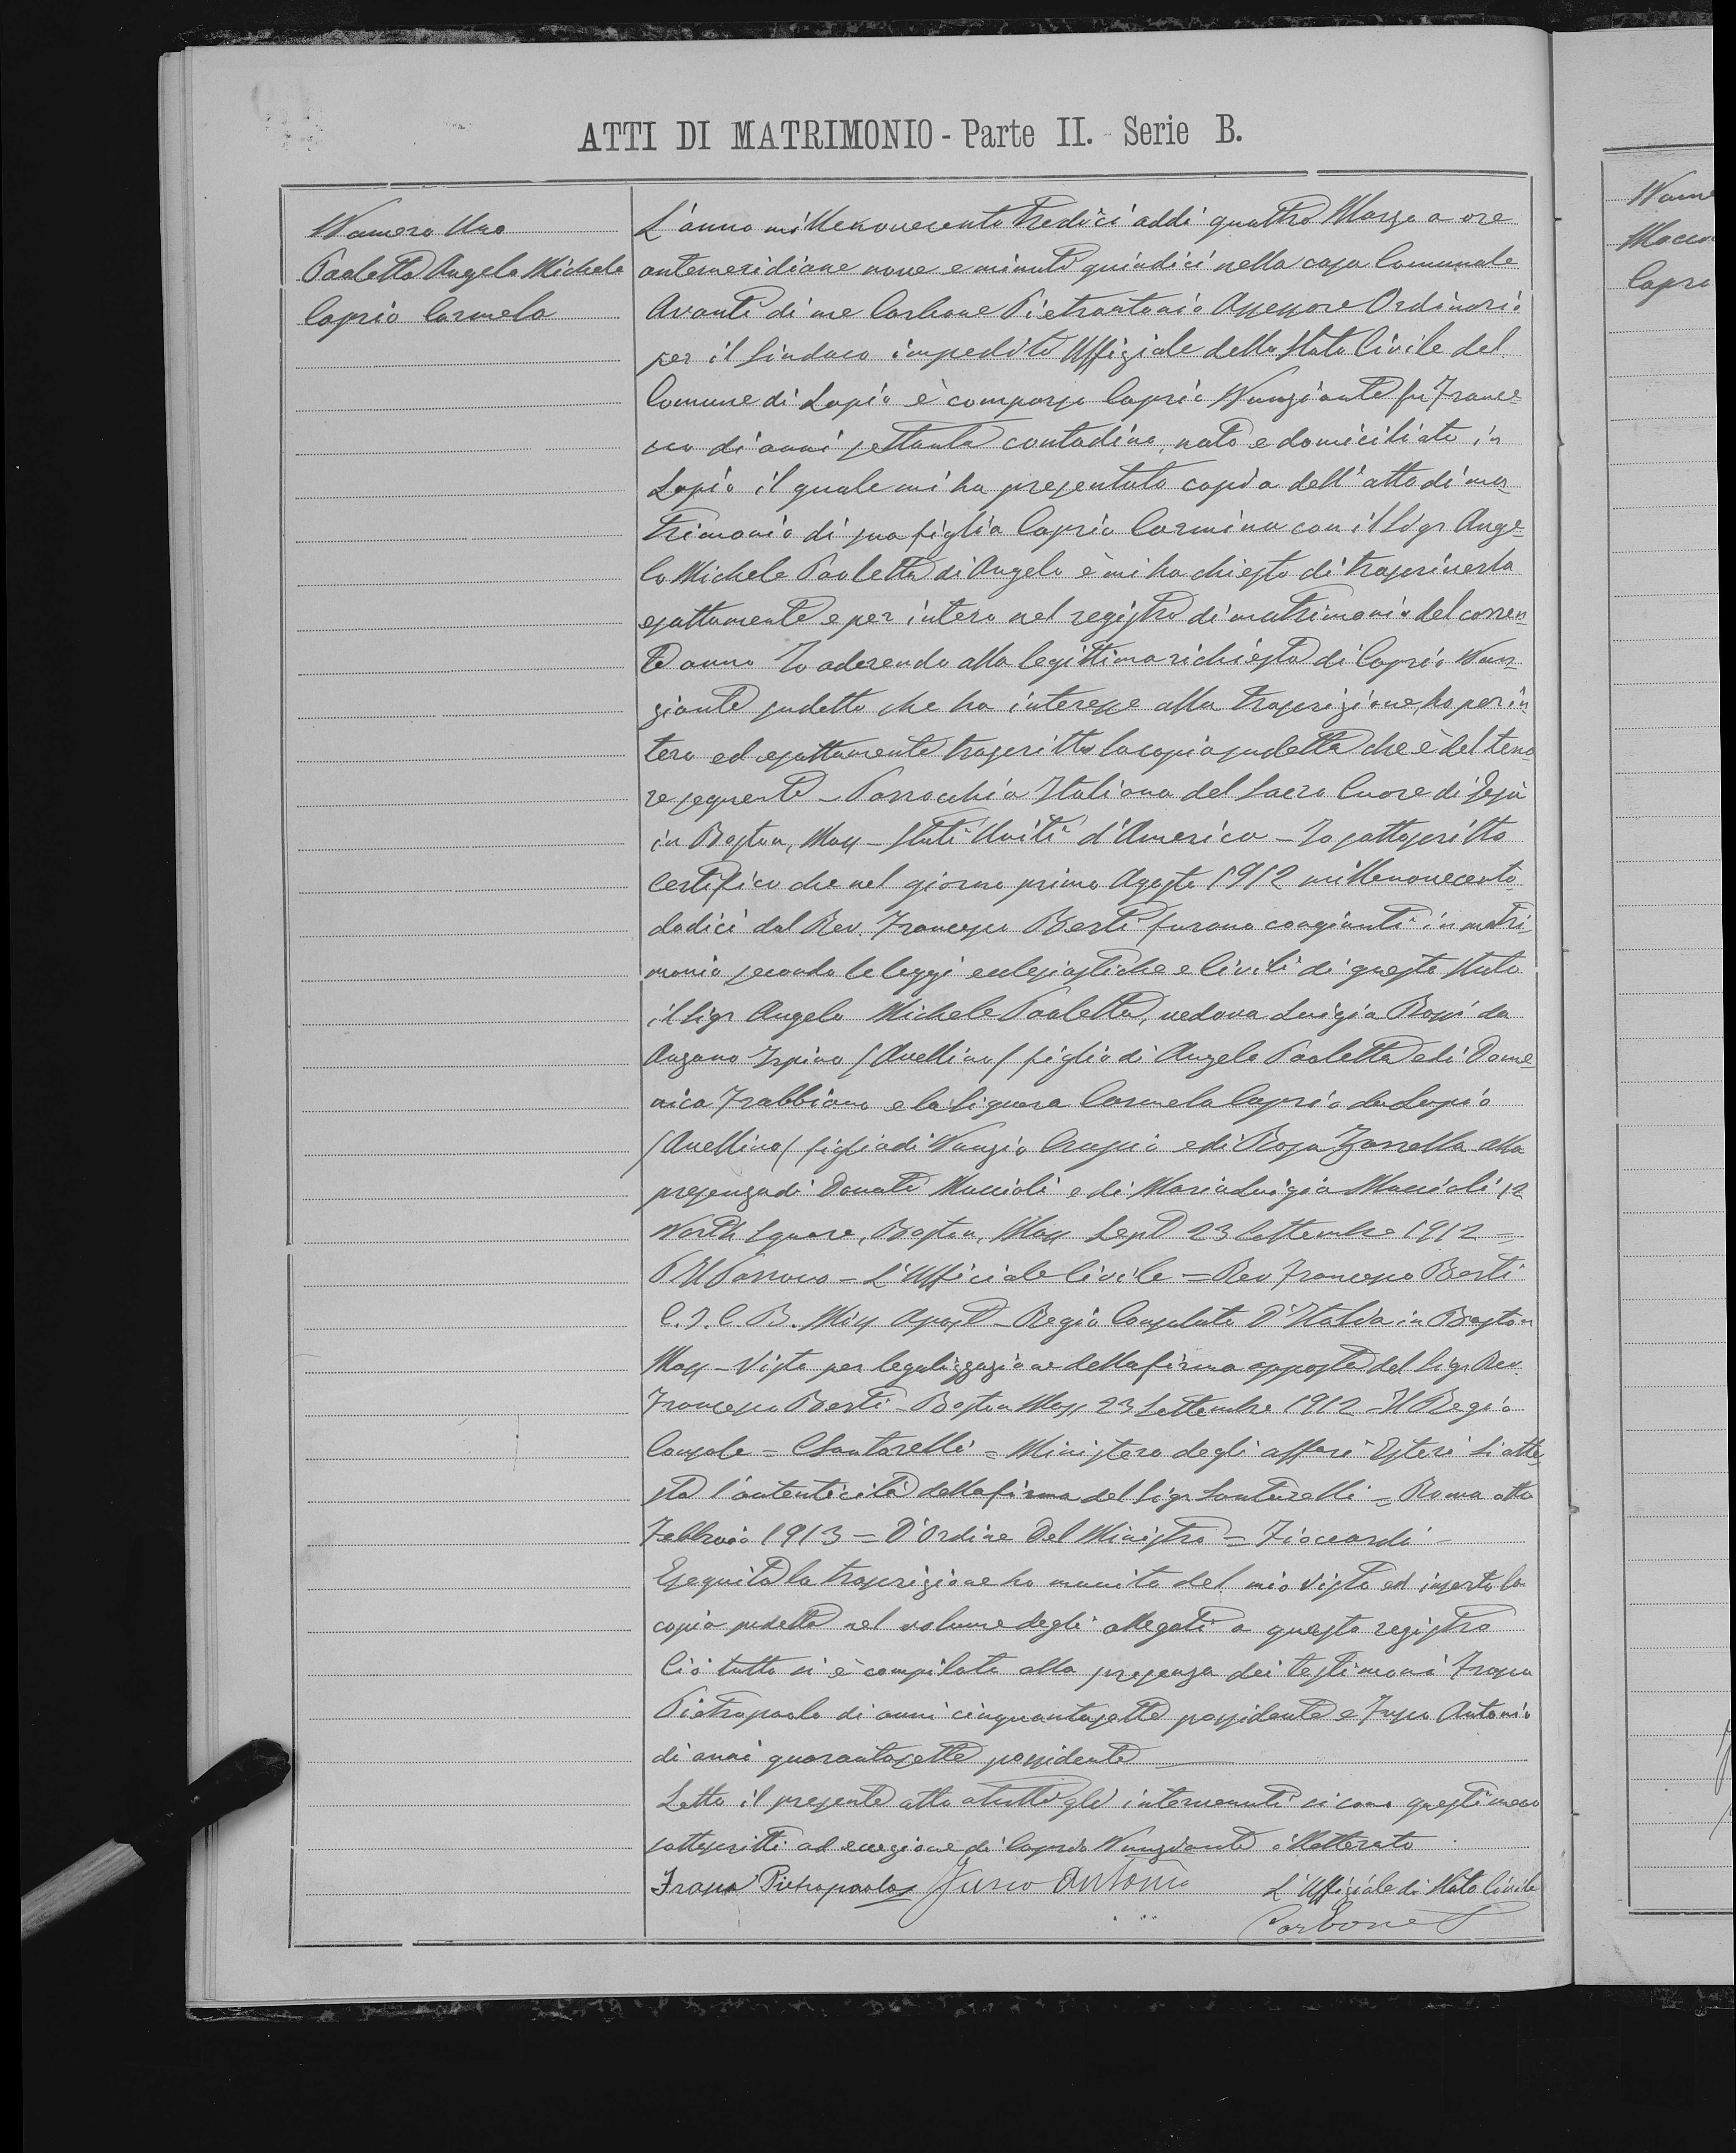 ATTI DI MATRIMONIO - Parte II. Serie B.
Numero Uno
Paoletta Angelo Michele
Caprio Carmela
L'anno millenovecentotredici addì quattro Marzo a ore
antemeridiane nove e minuti quindici nella casa Comunale
Avanti di me Carbone Pietrantonio Assessore Ordinario
per il Sindaco impedito Uffiziale dello Stato Civile del
Comune di Lapio è comparso Caprio Nunziante fu France=
sco di anni settanta contadino, nato e domiciliato in
Lapio il quale mi ha presentato copia dell'atto di ma=
trimonio di sua figlia Caprio Carmina con il Sigr Ange=
lo Michele Paoletta di Angelo è mi ha chiesto di trascriverla
esattamente e per intero nel registro di matrimonio del corren=
te anno Io aderendo alla legittima richiesta di Caprio Nun=
ziante sudetto che ha interesse alla trascrizione, ho per in
tero ed esattamente trascritta la copia sudetta che è del teno=
re seguente - Parrocchia Italiana del Sacro Cuore di Gesù
in Boston, Mass - Stati Uniti d'America - Io sottoscritto
Certifico che nel giorno primo Agosto 1912 millenovecento
dodici dal Rev. Francesco Berti furono congiunti in matri
monio secondo le leggi ecclesiastiche e Civili di questo Stato
il Sigr Angelo Michele Paoletta, vedova Luigia Rossi da
Anzano Irpino (Avellino) figlio di Angelo Paoletta e di Dome=
nica Frabbiano e la Signora Carmela Caprio da Lapio
(Avellino) figlia di Nunzio Crispia e di Rosa Zarrella alla
presenza di Donato Maccioli e di Maria Luigia Maccioli 12
North Square, Boston, Mass Sept 23 Settembre 1912 -
P Il Parroco - L'Ufficiale Civile = Rev Francesco Berti
C. S. C. B. Miss Apost - Regio Consolato D'Italia in Boston
Mass - Visto per legalizzazione della firma apposta del Sigr Rev.
Francesco Berti - Boston Mass 23 Settembre 1912 - Il Regio
Console = C Santarelli = Ministero degli affari Esteri Si atte=
sta l'autenticità della firma del Sigr Santarelli = Roma otto
Febbraio 1913 = D'Ordine Del Ministro = Fioccardi -
Eseguita la trascrizione ho munito del mio visto ed inserto la
copia sudetta nel volume degli allegati a questo registro
Ciò tutto si è compilato alla presenza dei testimoni Frasca
Pietropaolo di anni cinquantasette possidente e Fusco Antonio
di anni quarantasette possidente
Letto il presente atto a tutti gli intervenuti si sono questi meco
sottoscritti ad eccezione di Caprio Nunziante illetterato
Frasca Pietropaolo Fusco Antonio L'Uffiziale di Stato Civile
Carbone
Nume
Capri